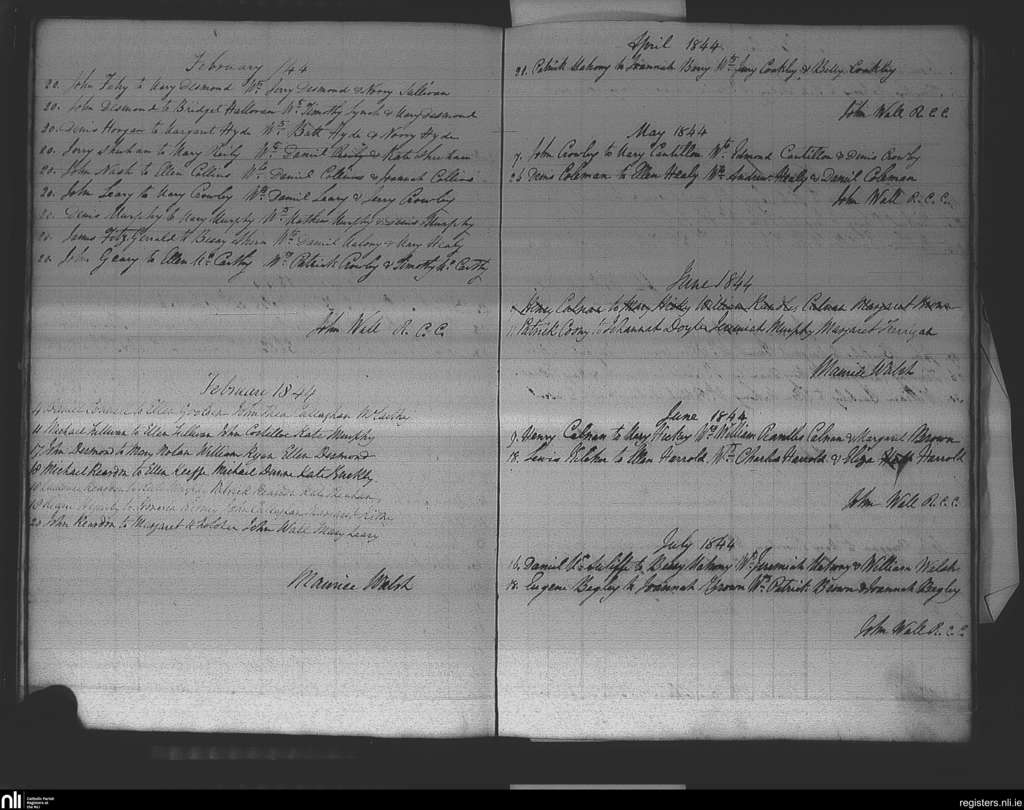 February /44
20. John Fahy to Mary Desmond Wts Jerry Desmond & Nory Sullivan
20. John Desmond to Bridget Halloran Wts Timothy Lynch & Mary Desmond
20. Denis Horgan to Margaret Hyde Wts Batt Hyde & Norry Hyde
20. Jerry Sheehan to Mary Reily Wts Daniel Reily & Kate Sheehan
20. John Nash to Ellen Collins Wts Daniel Collins & Joannah Collins
20. John Leary to Mary Crowley Wts Daniel Leary & Jerry Crowley
20. Denis Murphy to Mary Murphy Wts Mathew Murphy & Denis Murphy
20. James Fitz Gerald to Bessy Ahern Wts Daniel Mahony & Mary Healy
20. John Geary to Ellen McCarthy Wts Patrick Crowly & Timothy McCarthy
John Wall R. C. C.
February 1844
to Ellen
11 Michael Sullivan to Ellen Sullivan John Costelloe Kate Murphy
17 John Desmond to Mary Nolan William Ryan Ellen Desmond
18 Michael Reardon to Ellen Keeffe Michael Dunne Kate Buckley
Reardon to Patrick Reardon Kate
to Honora John Callaghan Margaret
20 John Reardon to Margaret John Wall Mary Leary
Maurice Walsh
April 1844
21. Patrick Mahony to Joannah Barry Wts Jerry Coakley & Betsy Coakley
John Wall R.C.C.
May 1844
7. John Crowley to Mary Cantillon Wts Edmond Cantillon & Denis Crowly
26 Denis Coleman to Ellen Healy Wts Andrew Healy & Daniel Coleman
John Wall R.C.C.
June 1844
Henry Colman to Mary Hickey William Colman Margaret Brown
11 Patrick to Johannah Doyle Jeremiah Murphy Margaret
Maurice Walsh
June 1844
9. Henry Calnan to Mary Hickey Wts William Calnan & Margaret Brown
18. Lewis to Ellen Harrold Wts Charles Harrold & Eliza Harrold
John Wall R.C.C.
July 1844
16. Daniel McAuliffe to Bessy Mahony Wts Jeremiah Mahony & William Walsh
18. Eugene Begley to Joannah Brown Wts Patrick Brown & Joannah Begley
John Wall R.C.C.
nli
Catholic Parish
Registers at
the NLI
registers.nli.ie